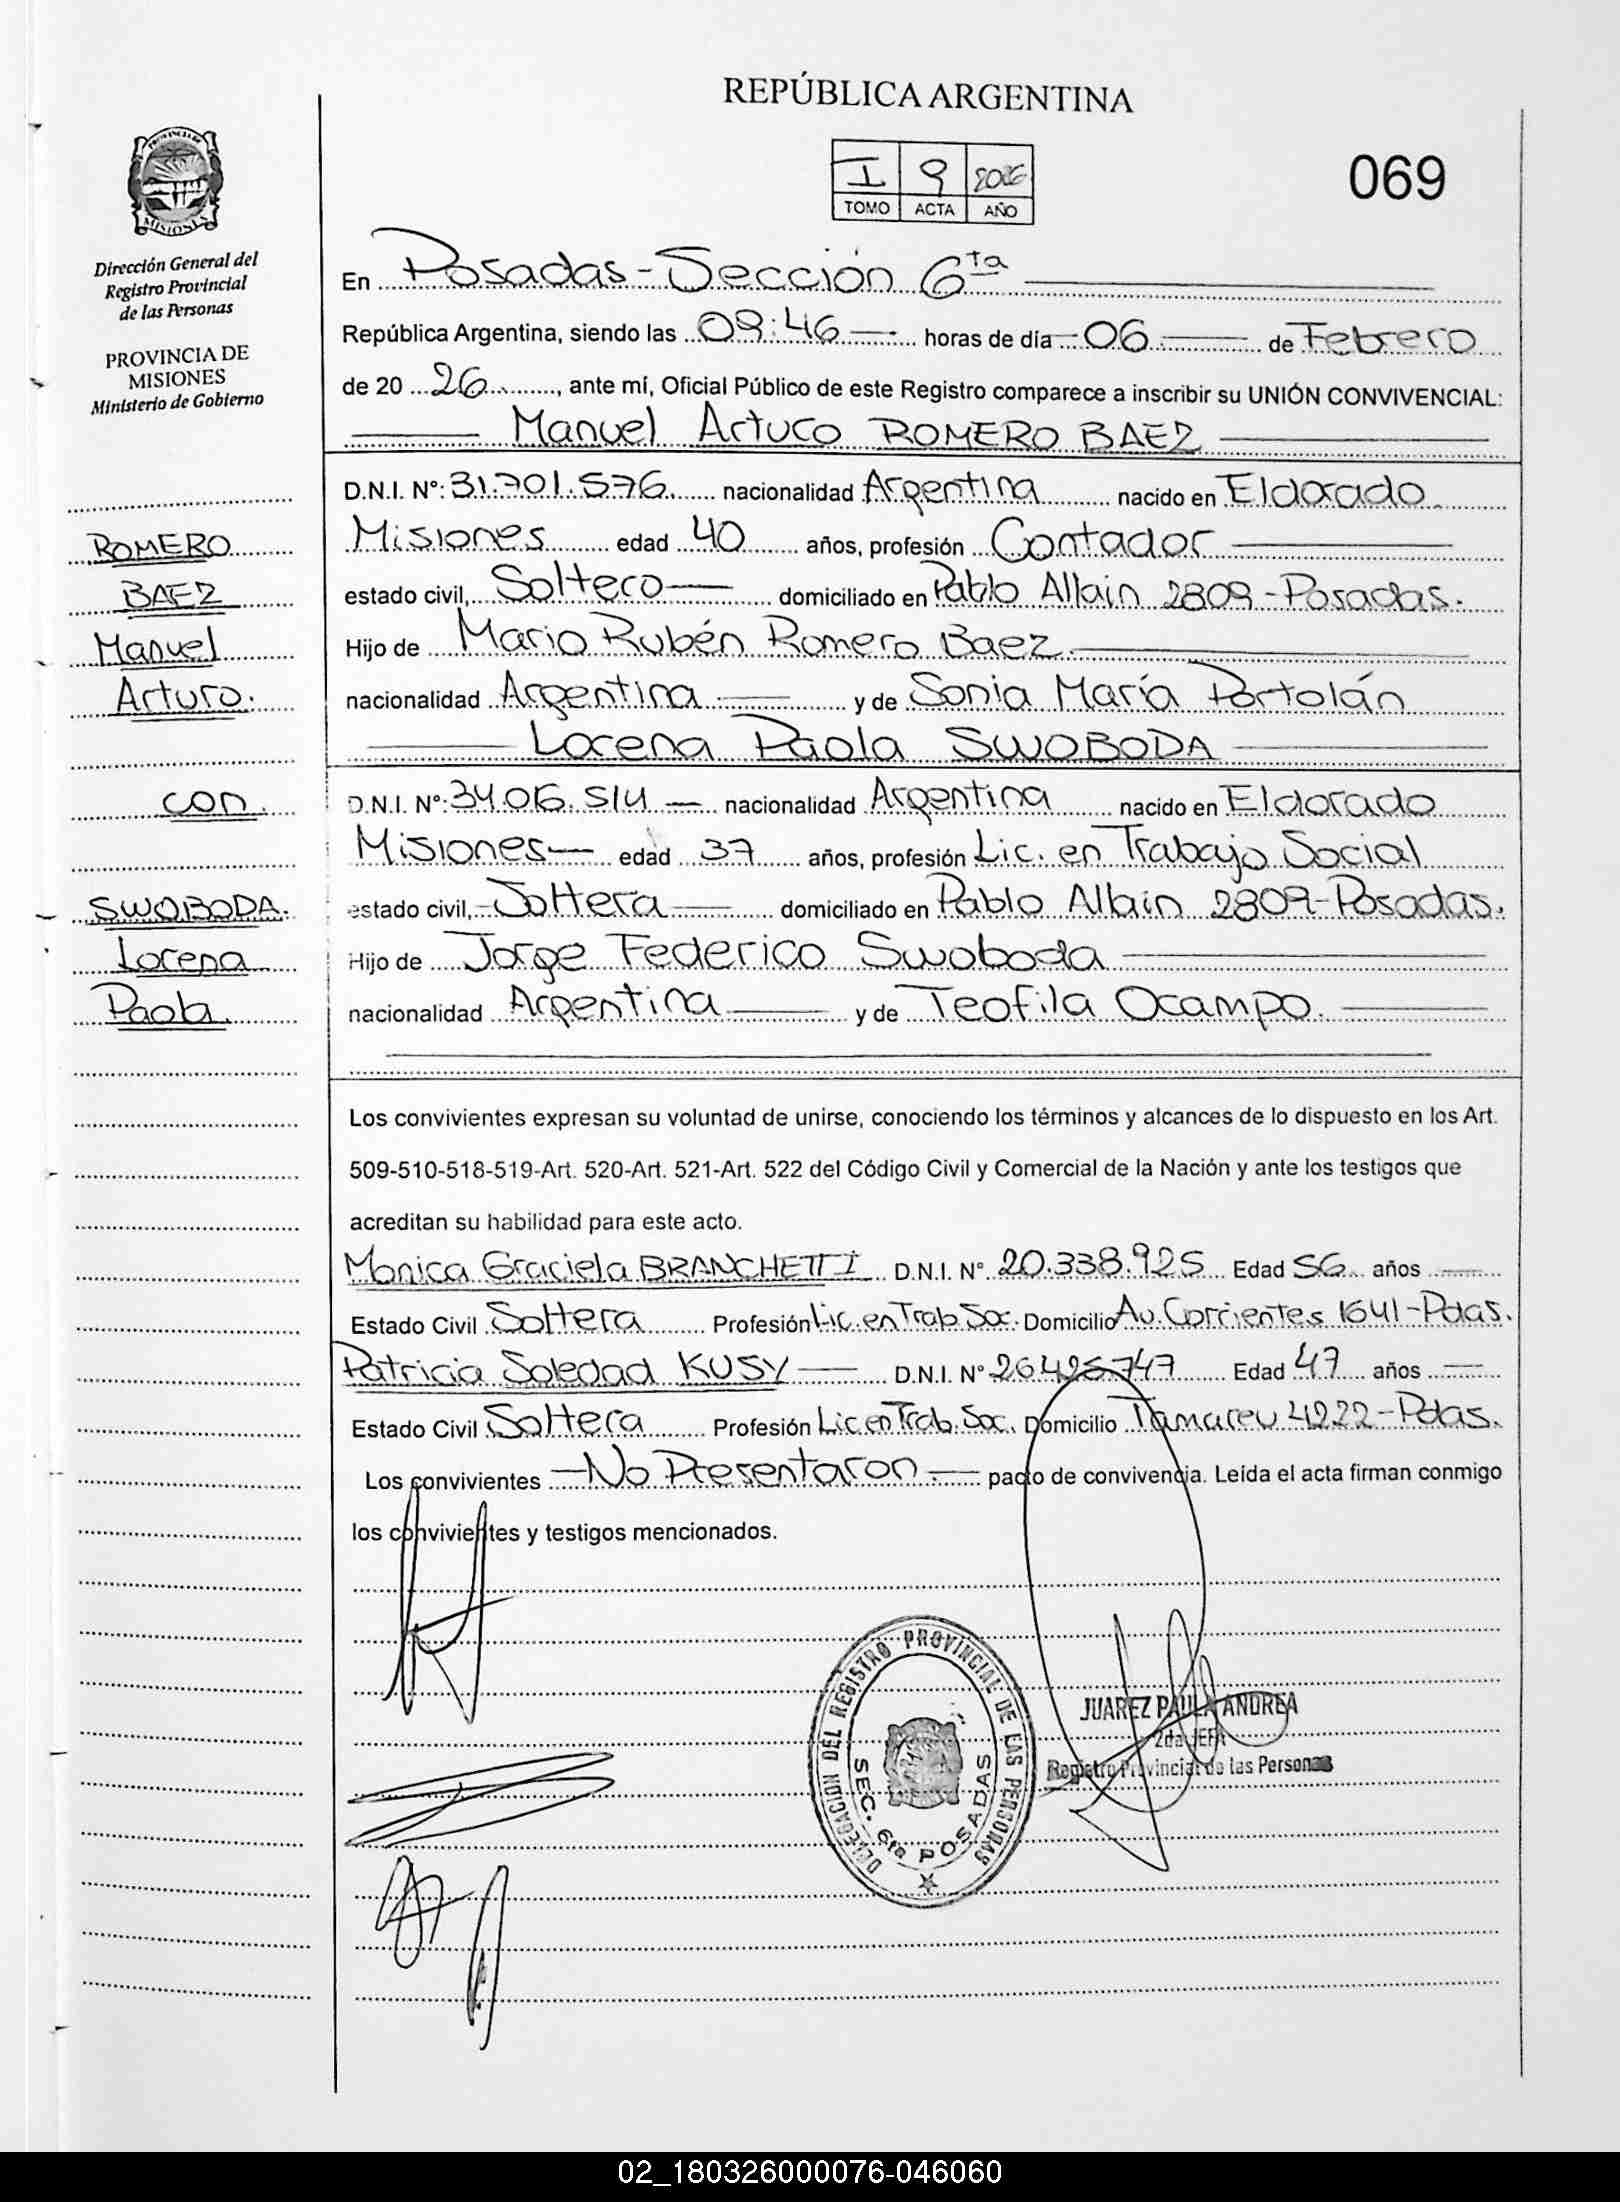 REPÚBLICA ARGENTINA
I 9 2026
TOMO ACTA AÑO
069
PROVINCIA DE
MISIONES
Dirección General del
Registro Provincial
de las Personas
PROVINCIA DE
MISIONES
Ministerio de Gobierno
ROMERO
BAEZ
Manuel
Arturo.
con.
SWOBODA.
Lorena
Paola.
En Posadas - Sección 6ta
República Argentina, siendo las 09:46 horas de día 06 de Febrero
de 20 26, ante mí, Oficial Público de este Registro comparece a inscribir su UNIÓN CONVIVENCIAL:
Manuel Arturo ROMERO BAEZ
D.N.I. Nº: 31.701.576 nacionalidad Argentina nacido en Eldorado
Misiones edad 40 años, profesión Contador
estado civil, Soltero domiciliado en Pablo Allain 2809 - Posadas.
Hijo de Mario Rubén Romero Baez
nacionalidad Argentina y de Sonia María Portolán
Lorena Paola SWOBODA
D.N.I. Nº: 34.016.514 nacionalidad Argentina nacido en Eldorado
Misiones edad 37 años, profesión Lic. en Trabajo Social
estado civil, Soltera domiciliado en Pablo Allain 2809 - Posadas.
Hijo de Jorge Federico Swoboda
nacionalidad Argentina y de Teofila Ocampo.
Los convivientes expresan su voluntad de unirse, conociendo los términos y alcances de lo dispuesto en los Art.
509-510-518-519-Art. 520-Art. 521-Art. 522 del Código Civil y Comercial de la Nación y ante los testigos que
acreditan su habilidad para este acto.
Monica Graciela BRANCHETTI D.N.I. Nº 20.338.925 Edad 56 años
Estado Civil Soltera Profesión Lic. en Trab. Soc. Domicilio Av. Corrientes 1641 - Pdas.
Patricia Soledad KUSY D.N.I. Nº 26.425747 Edad 47 años
Estado Civil Soltera Profesión Lic en Trab. Soc. Domicilio 4222 - Pdas.
Los convivientes - No Presentaron - pacto de convivencia. Leída el acta firman conmigo
los convivientes y testigos mencionados.
DELEGACION DEL REGISTRO PROVINCIAL DE LAS PERSONAS
SEC. 6ta POSADAS
JUAREZ PAULA ANDREA
2da JEFA
Registro Provincial de las Personas
02_180326000076-046060